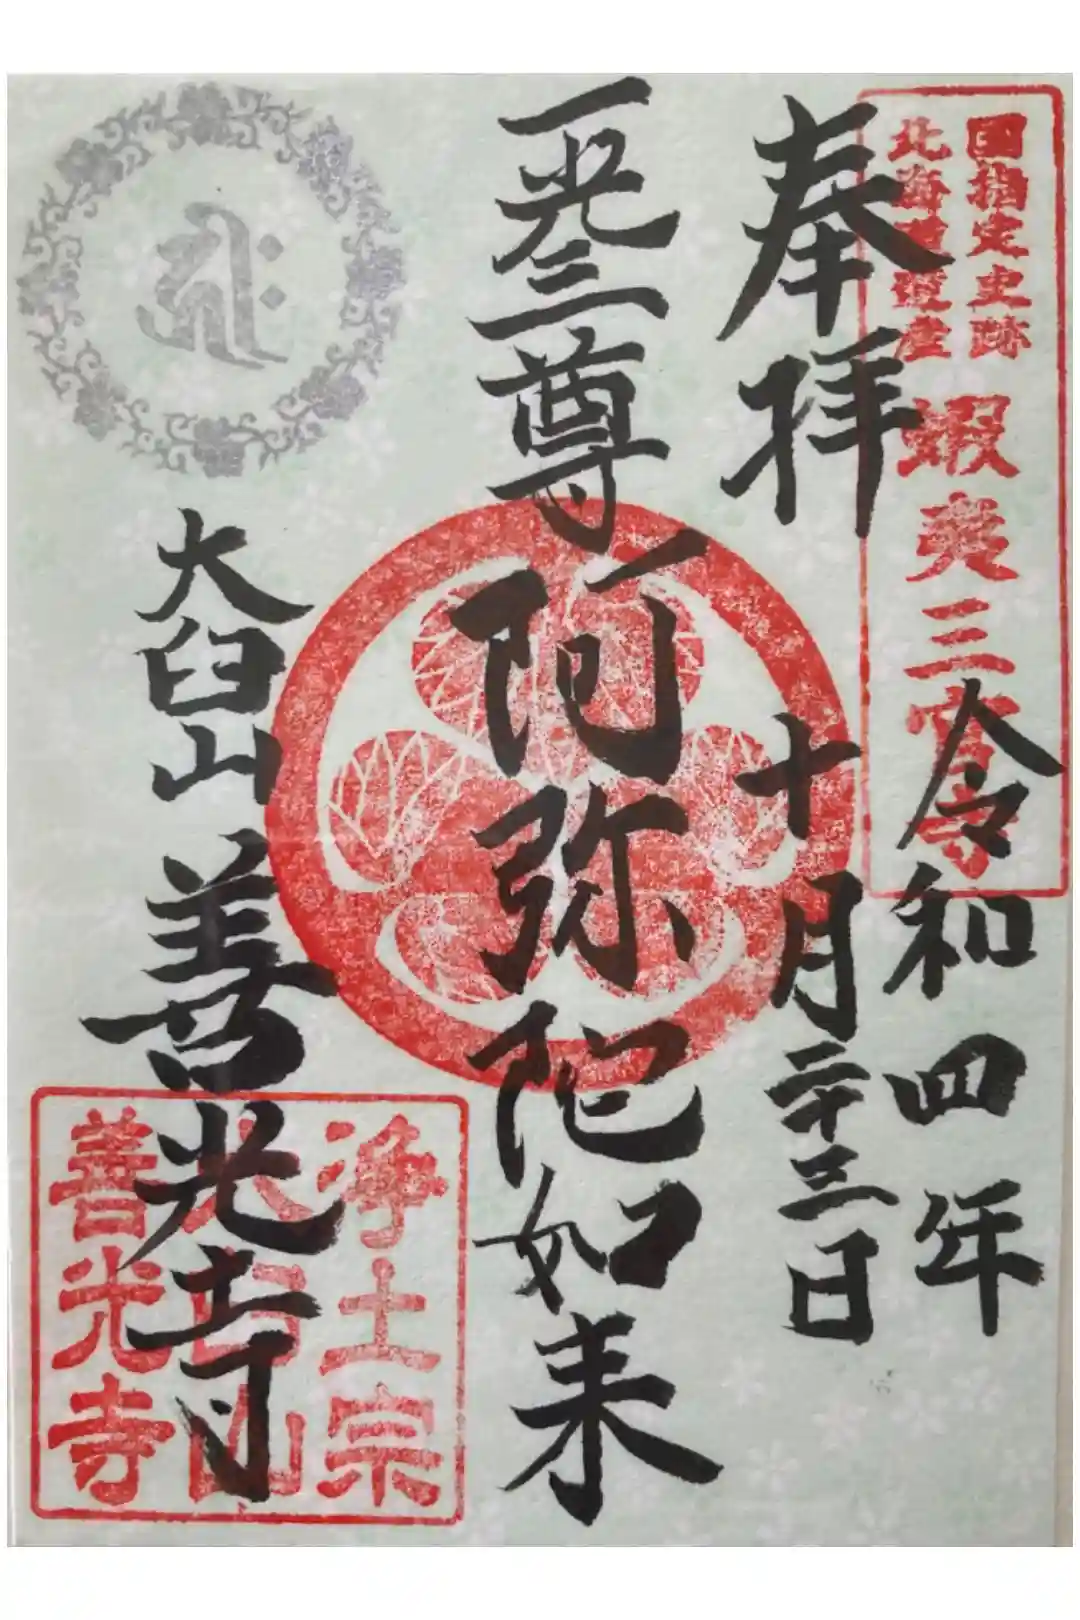 奉拝
国指定史跡
北海道遺産
蝦夷三官寺
令和四年
十月二十三日
一光三尊
阿弥陀如来
大臼山
善光寺
浄土宗
大臼山
善光寺